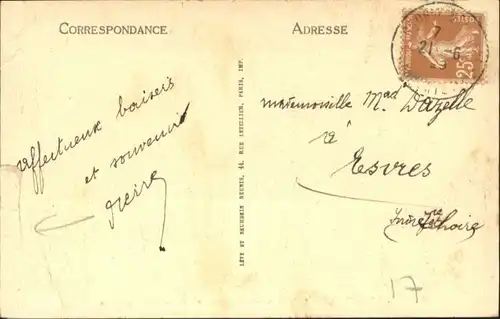 CORRESPONDANCE
ADRESSE
7
21-6
25
affectueux baisers
et souvenir
Pierre
LÉVY ET NEURDEIN RÉUNIS, 44, RUE LETELLIER, PARIS, IMP.
mademoiselle Mad Dazelle
à
Esvres
(Indre et Loire)
17